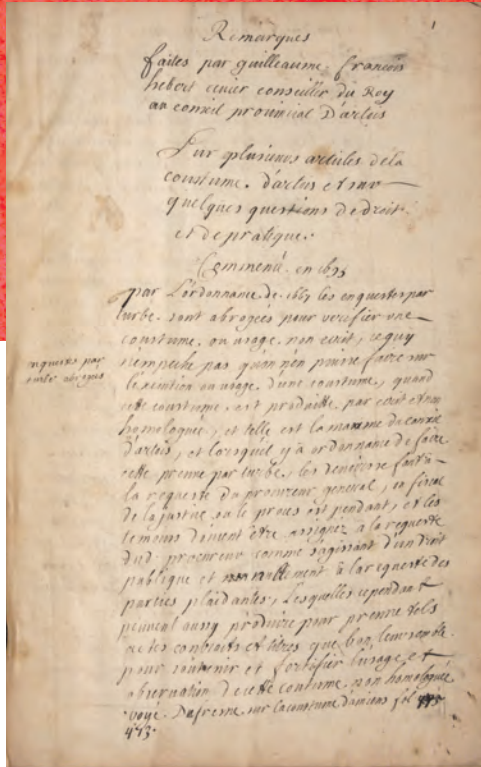 1
Remarques
faites par guilleaume francois
hebert ecuier conseiller du Roy
au conseil provincial D'artois
Sur plusieurs articles de la
coustume d'artois et sur
quelques questions de droit
et de pratique.
Commencé en 1695
par L'ordonnance de 1667 les enquestes par
turbe sont abrogées pour verifier une
coustume, ou usage non ecrit, ce quy
n'empeche pas qu'on n'en puisse faire sur
enquestes par
turbe abrogées
d'une coustume, quand
cette coustume est produitte par ecrit et non
homologuée, et telle est la maxime du conseil
d'artois, et lorsqu'il y a ordonnance de faire
cette preuve par turbe, les se fait à
la requeste du procureur general, ou fiscal
de la justice ou le proces est pendant, et les
temoins doivent etre assignez a la requeste
dud. procureur comme s'agissant d'un droit
publique et nullement à la requeste des
parties plaidantes, Lesquelles cependant
peuvent aussy produire pour preuve tels
actes contracts et titres que bon leur semble
pour soutenir et fortifier l'usage et
observation de cette coutume non homologuée
voyé Dufresne sur la coustume d'amiens fol
473.